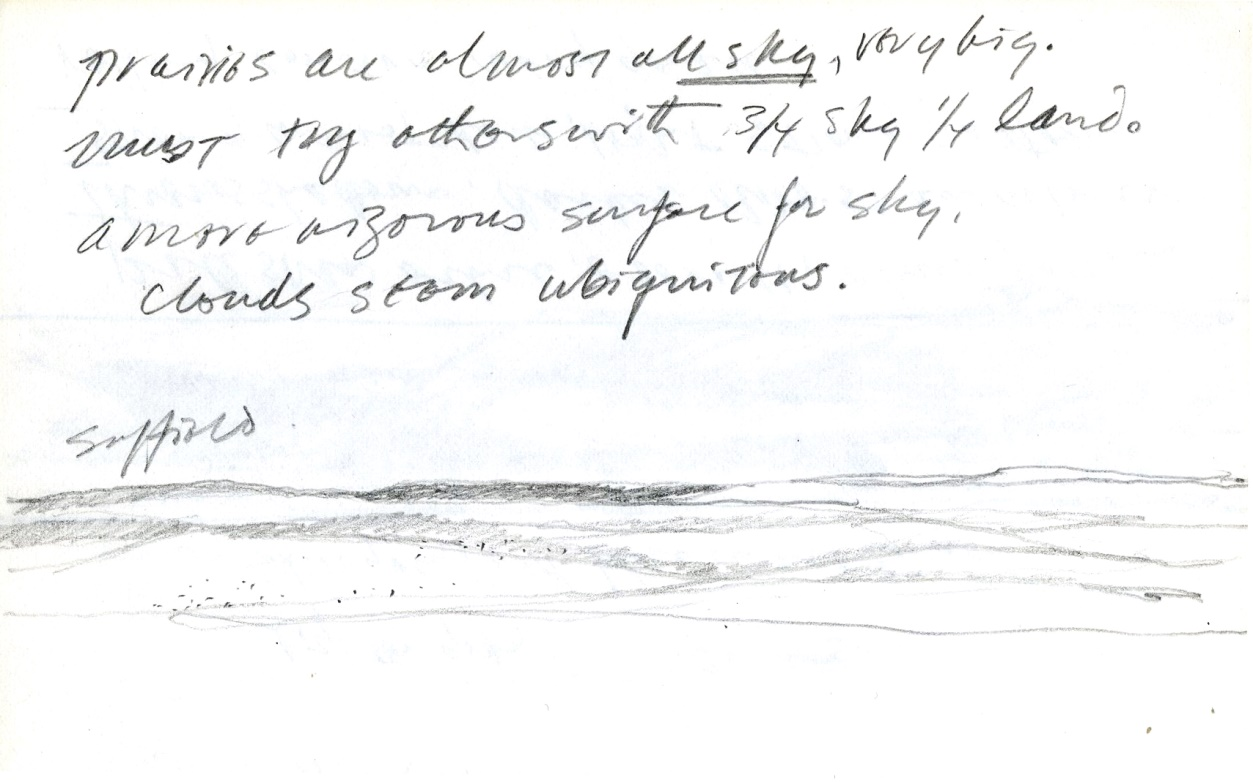 prairies are almost all sky, very big.
must try others with 3/4 sky 1/4 land.
a more vigorous surface for sky.
clouds seem ubiquitous.
Suffield